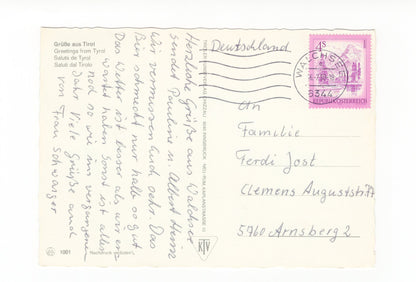 Grüße aus Tirol
Greetings from Tyrol
Saluts de Tyrol
Saluti dal Tirolo
Herzliche Grüße aus Walchsee
sendet Pauline u. Albert Heinz
Wir vermissen Euch sehr. Das
Bier schmeckt nur halb so gut
Das Wetter ist besser als wir er-
wartet haben Sonst ist alles
noch so wie im vergangenen
Jahr Viele Grüße auch
von Frau Schwaiger
1981
Nachdruck verboten
KTV
Deutschland
WALCHSEE
6344
4 S
REPUBLIK ÖSTERREICH
An
Familie
Ferdi Jost
Clemens Auguststr
5760 Arnsberg 2